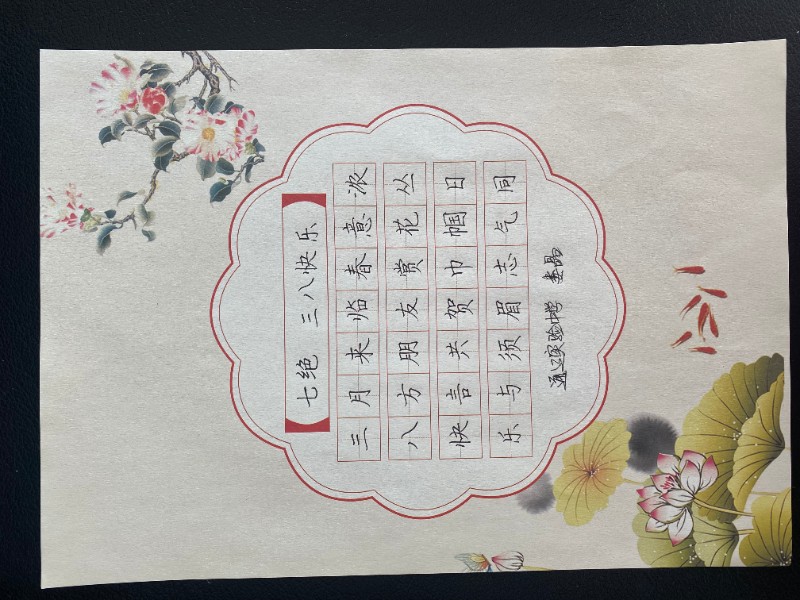 七绝 三八快乐
三月来临春意浓
八方朋友赏花丛
快言共贺巾帼日
乐与须眉志气同
通辽实验中学 娄晶